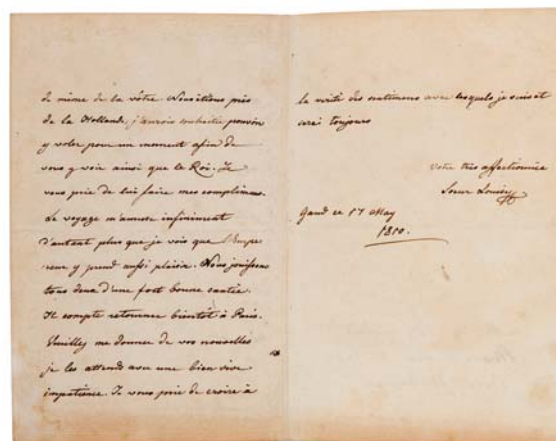 de même de la vôtre. Nous étions près
de la Hollande, j'aurois souhaitée pouvoir
y voler pour un moment afin de
vous y voir ainsi que le Roi. Je
vous prie de lui faire mes complimens.
Le voyage m'amuse infiniment
d'autant plus que je vois que l'Empe-
reur y prend aussi plaisir. Nous jouissons
tous deux d'une fort bonne santée.
Il compte retourner bientôt à Paris.
Veuillez me donner de vos nouvelles
je les attends avec une bien vive
impatience. Je vous prie de croire à
la verité des sentimens avec lesquels je suis et
serai toujours
votre très affectionnée
Soeur Louise
Gand ce 17 May
1810.